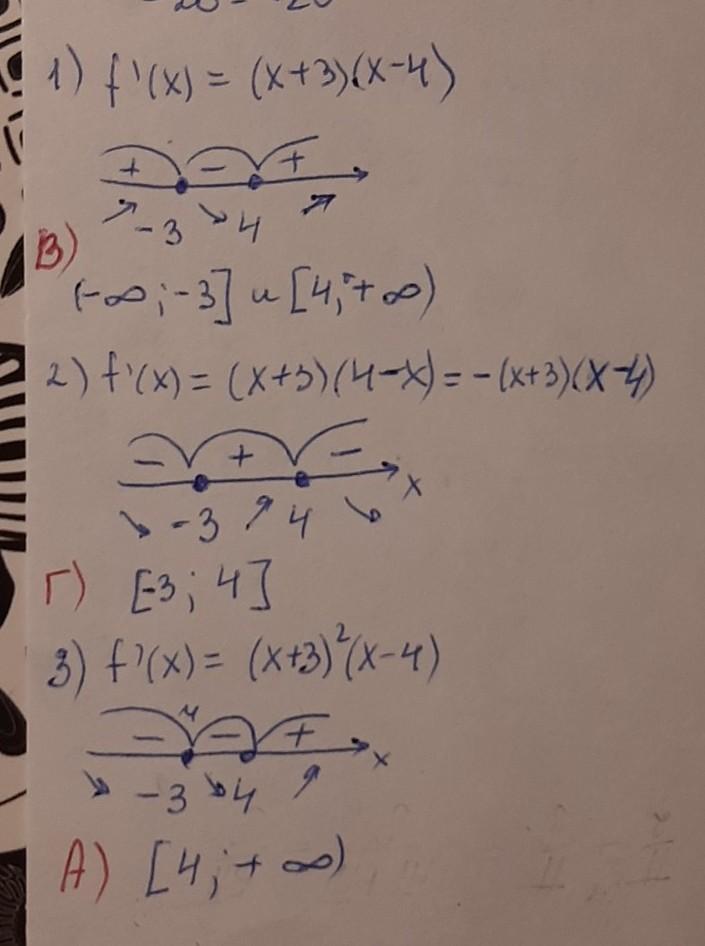 1) f'(x) = (x+3)(x-4)
+ - +
-3 4
В)
(-∞; -3] и [4; +∞)
2) f'(x) = (x+3)(4-x) = -(x+3)(x-4)
- + -
x
-3 4
Г) [-3; 4]
3) f'(x) = (x+3)²(x-4)
- - +
x
-3 4
А) [4; +∞)